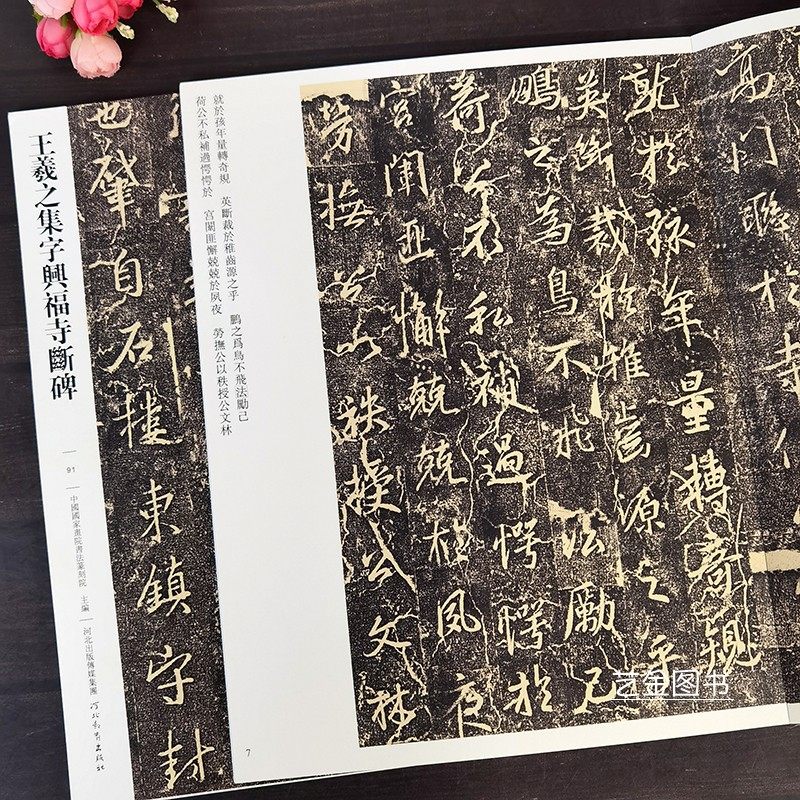 王羲之集字興福寺斷碑
91
中國國家畫院書法篆刻院 主編
河北出版傳媒集團
河北教育出版社
也肇自石樓東鎮守封
就於孩年量轉奇規 英斷裁於稚齒源之乎 鵬之爲鳥不飛法勵己
荷公不私補過愕愕於 宫闈匪懈兢兢於夙夜 勞撫公以秩授公文林
7
高門聯於寺
就於孩年量轉奇規
英斷裁於稚齒源之乎
鵬之為鳥不飛法勵己
荷公不私補過愕愕於
宫闈匪懈兢兢於夙夜
勞撫公以秩授公文林
艺金图书